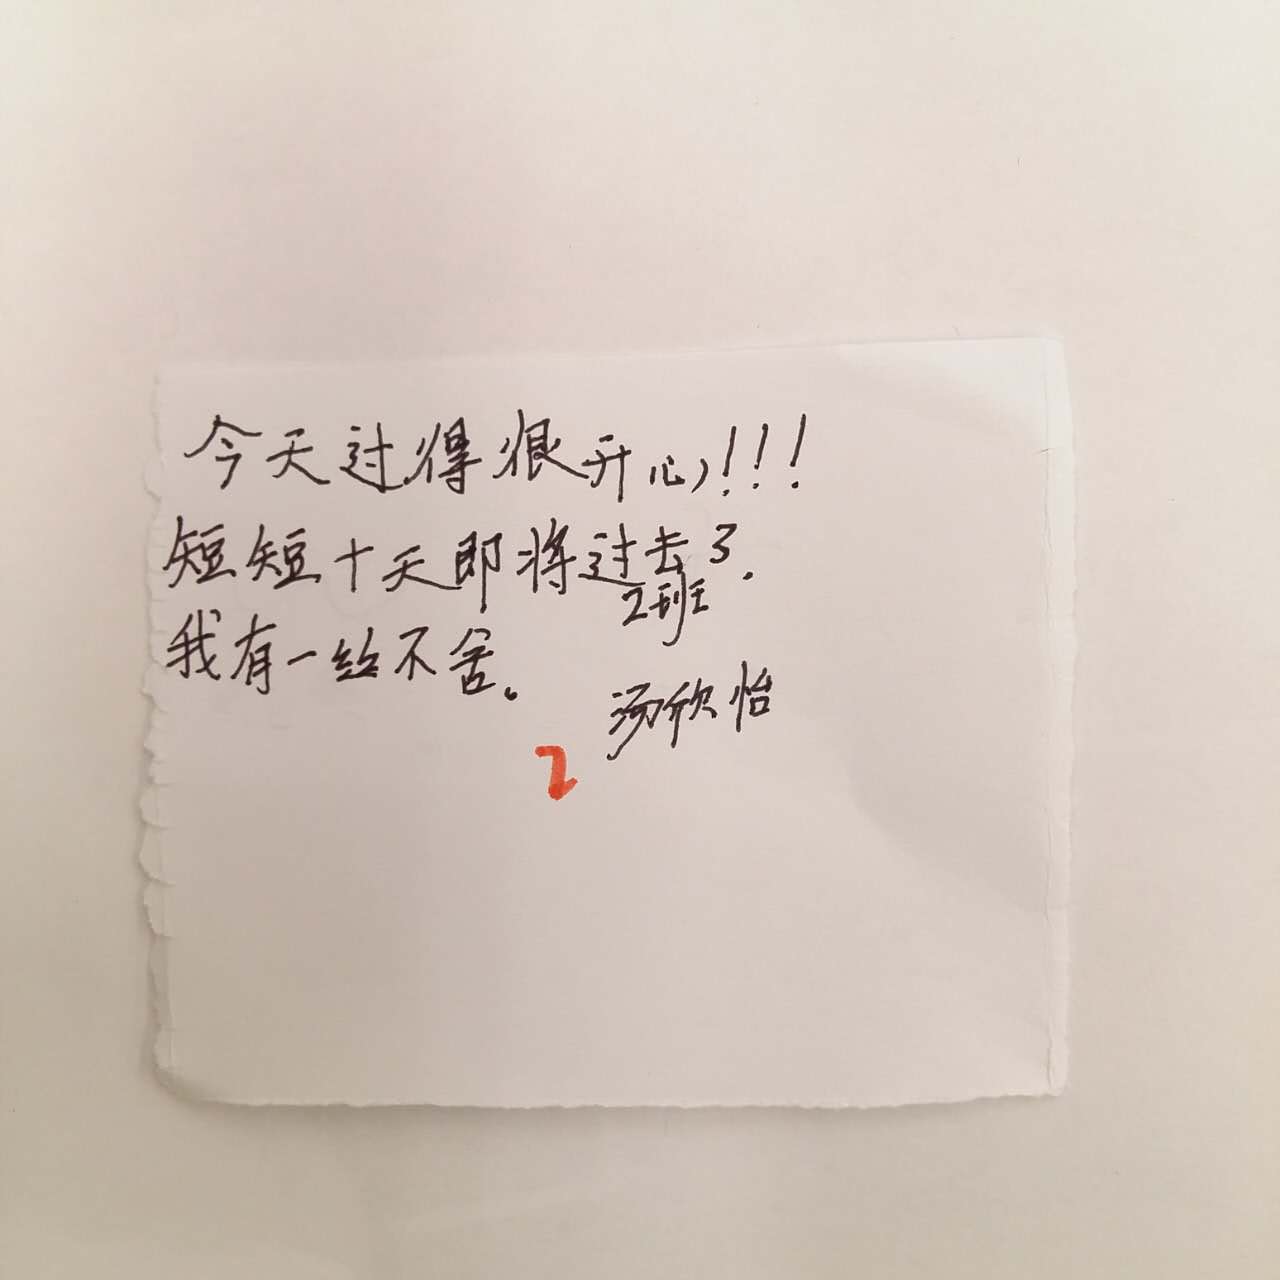 今天过得很开心！！！
短短十天即将过去了.
2班
我有一丝不舍。
汤欣怡
2